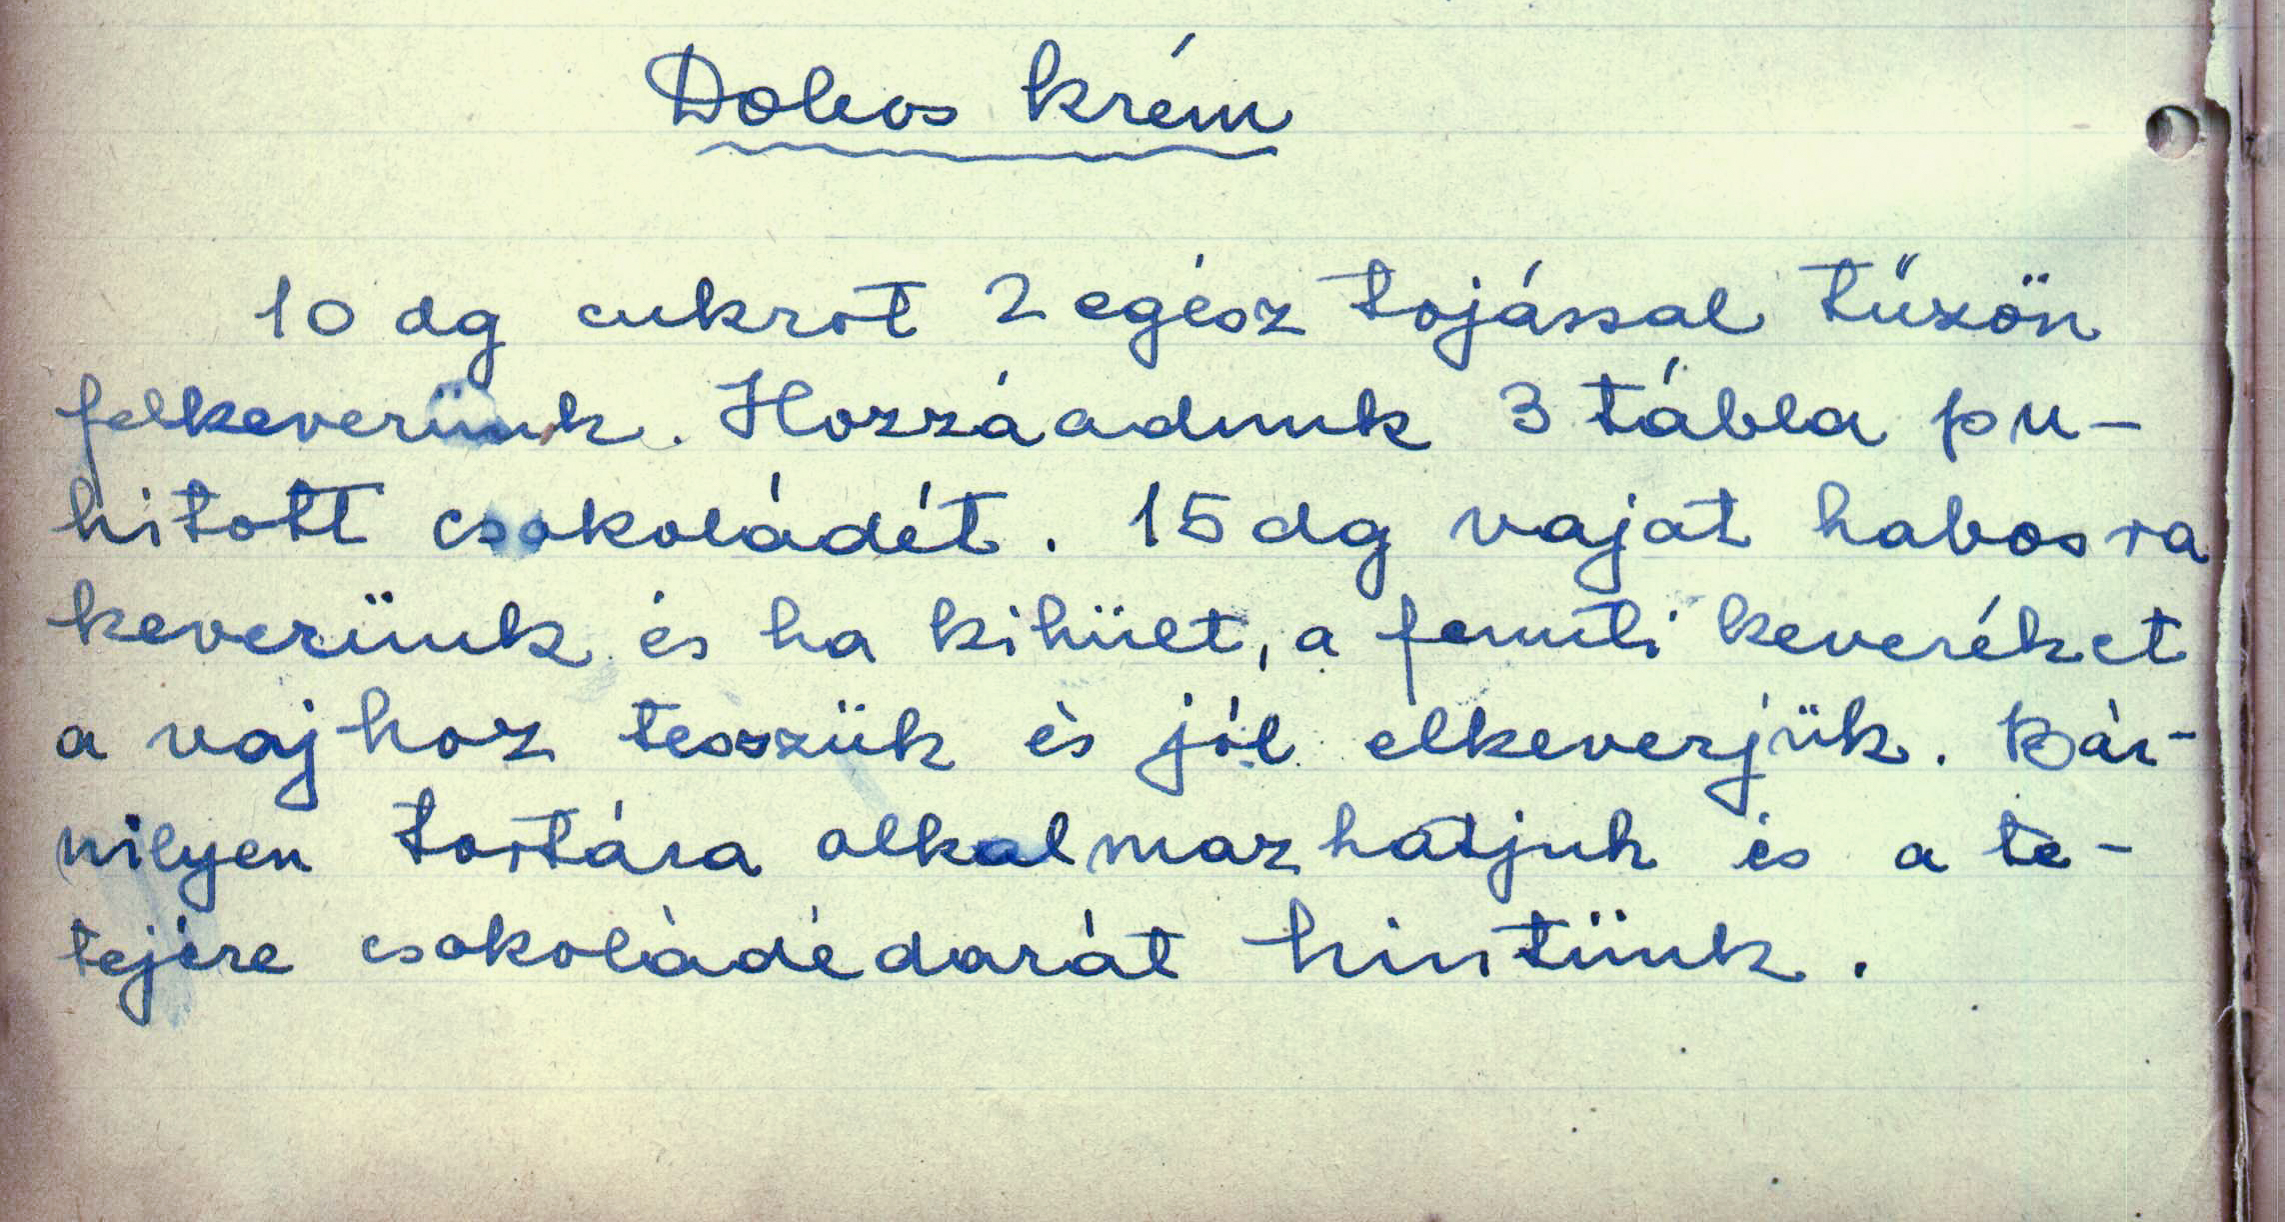 Dobos krém
10 dg cukrot 2 egész tojással tűzön
felkeverünk. Hozzáadunk 3 tábla pu-
hitott csokoládét. 15 dg vajat habosra
keverünk és ha kihült, a fenti keveréket
a vajhoz tesszük és jól elkeverjük. Bár-
milyen tortára alkalmazhatjuk és a te-
tejére csokoládédarát hintünk.